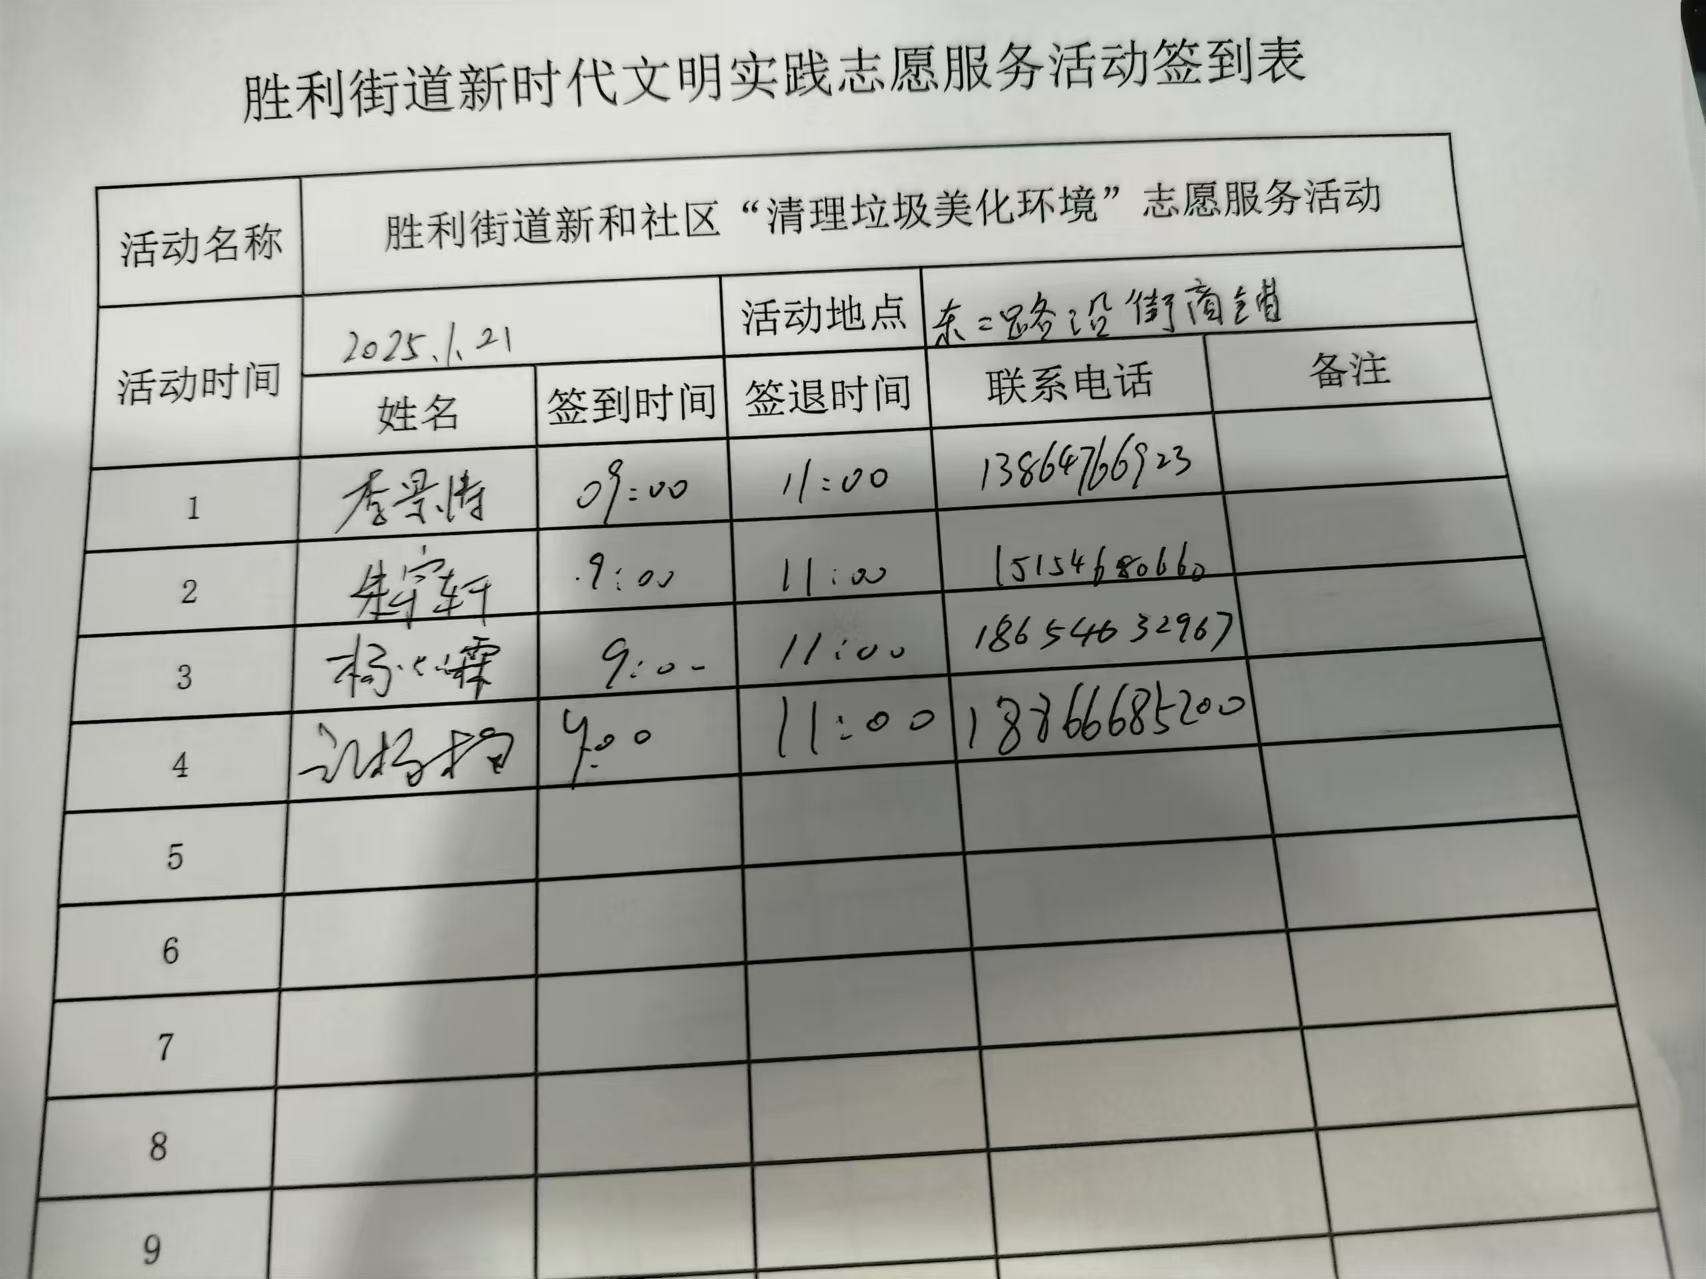 胜利街道新时代文明实践志愿服务活动签到表
活动名称 胜利街道新和社区“清理垃圾美化环境”志愿服务活动
活动时间 2025.1.21 活动地点 东二路沿街商铺
姓名 签到时间 签退时间 联系电话 备注
1 李景涛 09:00 11:00 13864766923
2 朱宇轩 9:00 11:00 15154680660
3 杨心霖 9:00 11:00 18654632967
4 9:00 11:00 18866685200
5
6
7
8
9